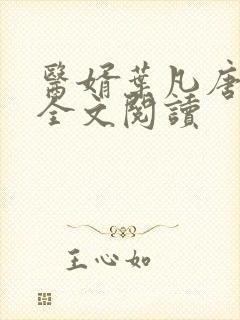 醫婿葉凡唐
全文閱讀
王心如